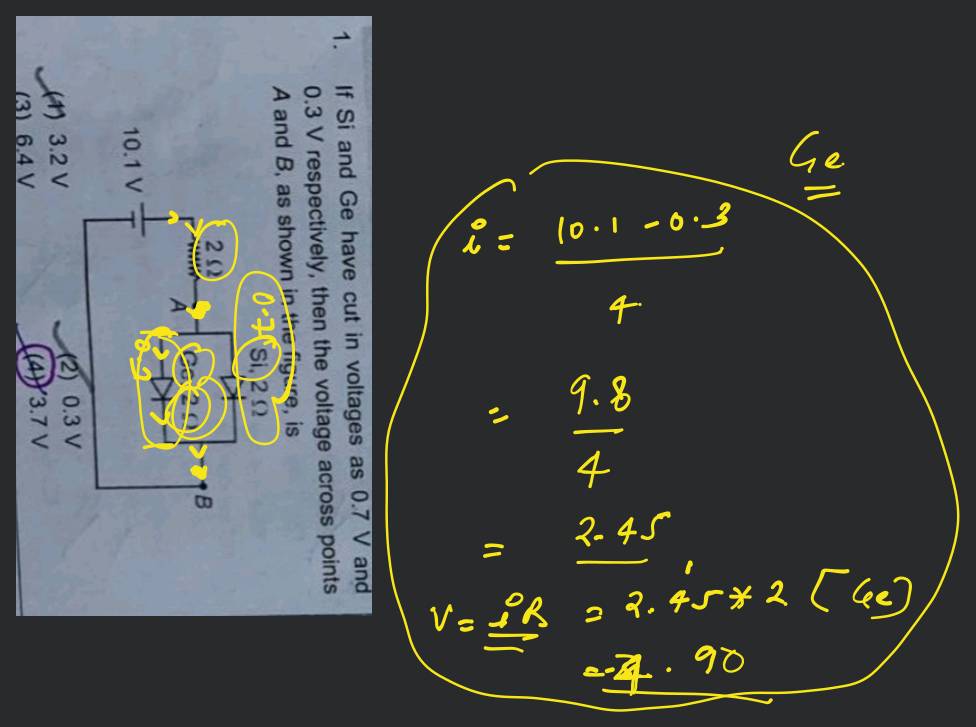 1. If Si and Ge have cut in voltages as 0.7 V and
0.3 V respectively, then the voltage across points
A and B, as shown in the figure, is
0.7
Si, 2 Ω
2 Ω
A
Ge 2 Ω
B
10.1 V
(1) 3.2 V
(2) 0.3 V
(3) 6.4 V
(4) 3.7 V
Ge
i = 10.1 - 0.3
4
= 9.8
4
= 2.45
V = iR = 2.45 * 2 [Ge]
.90